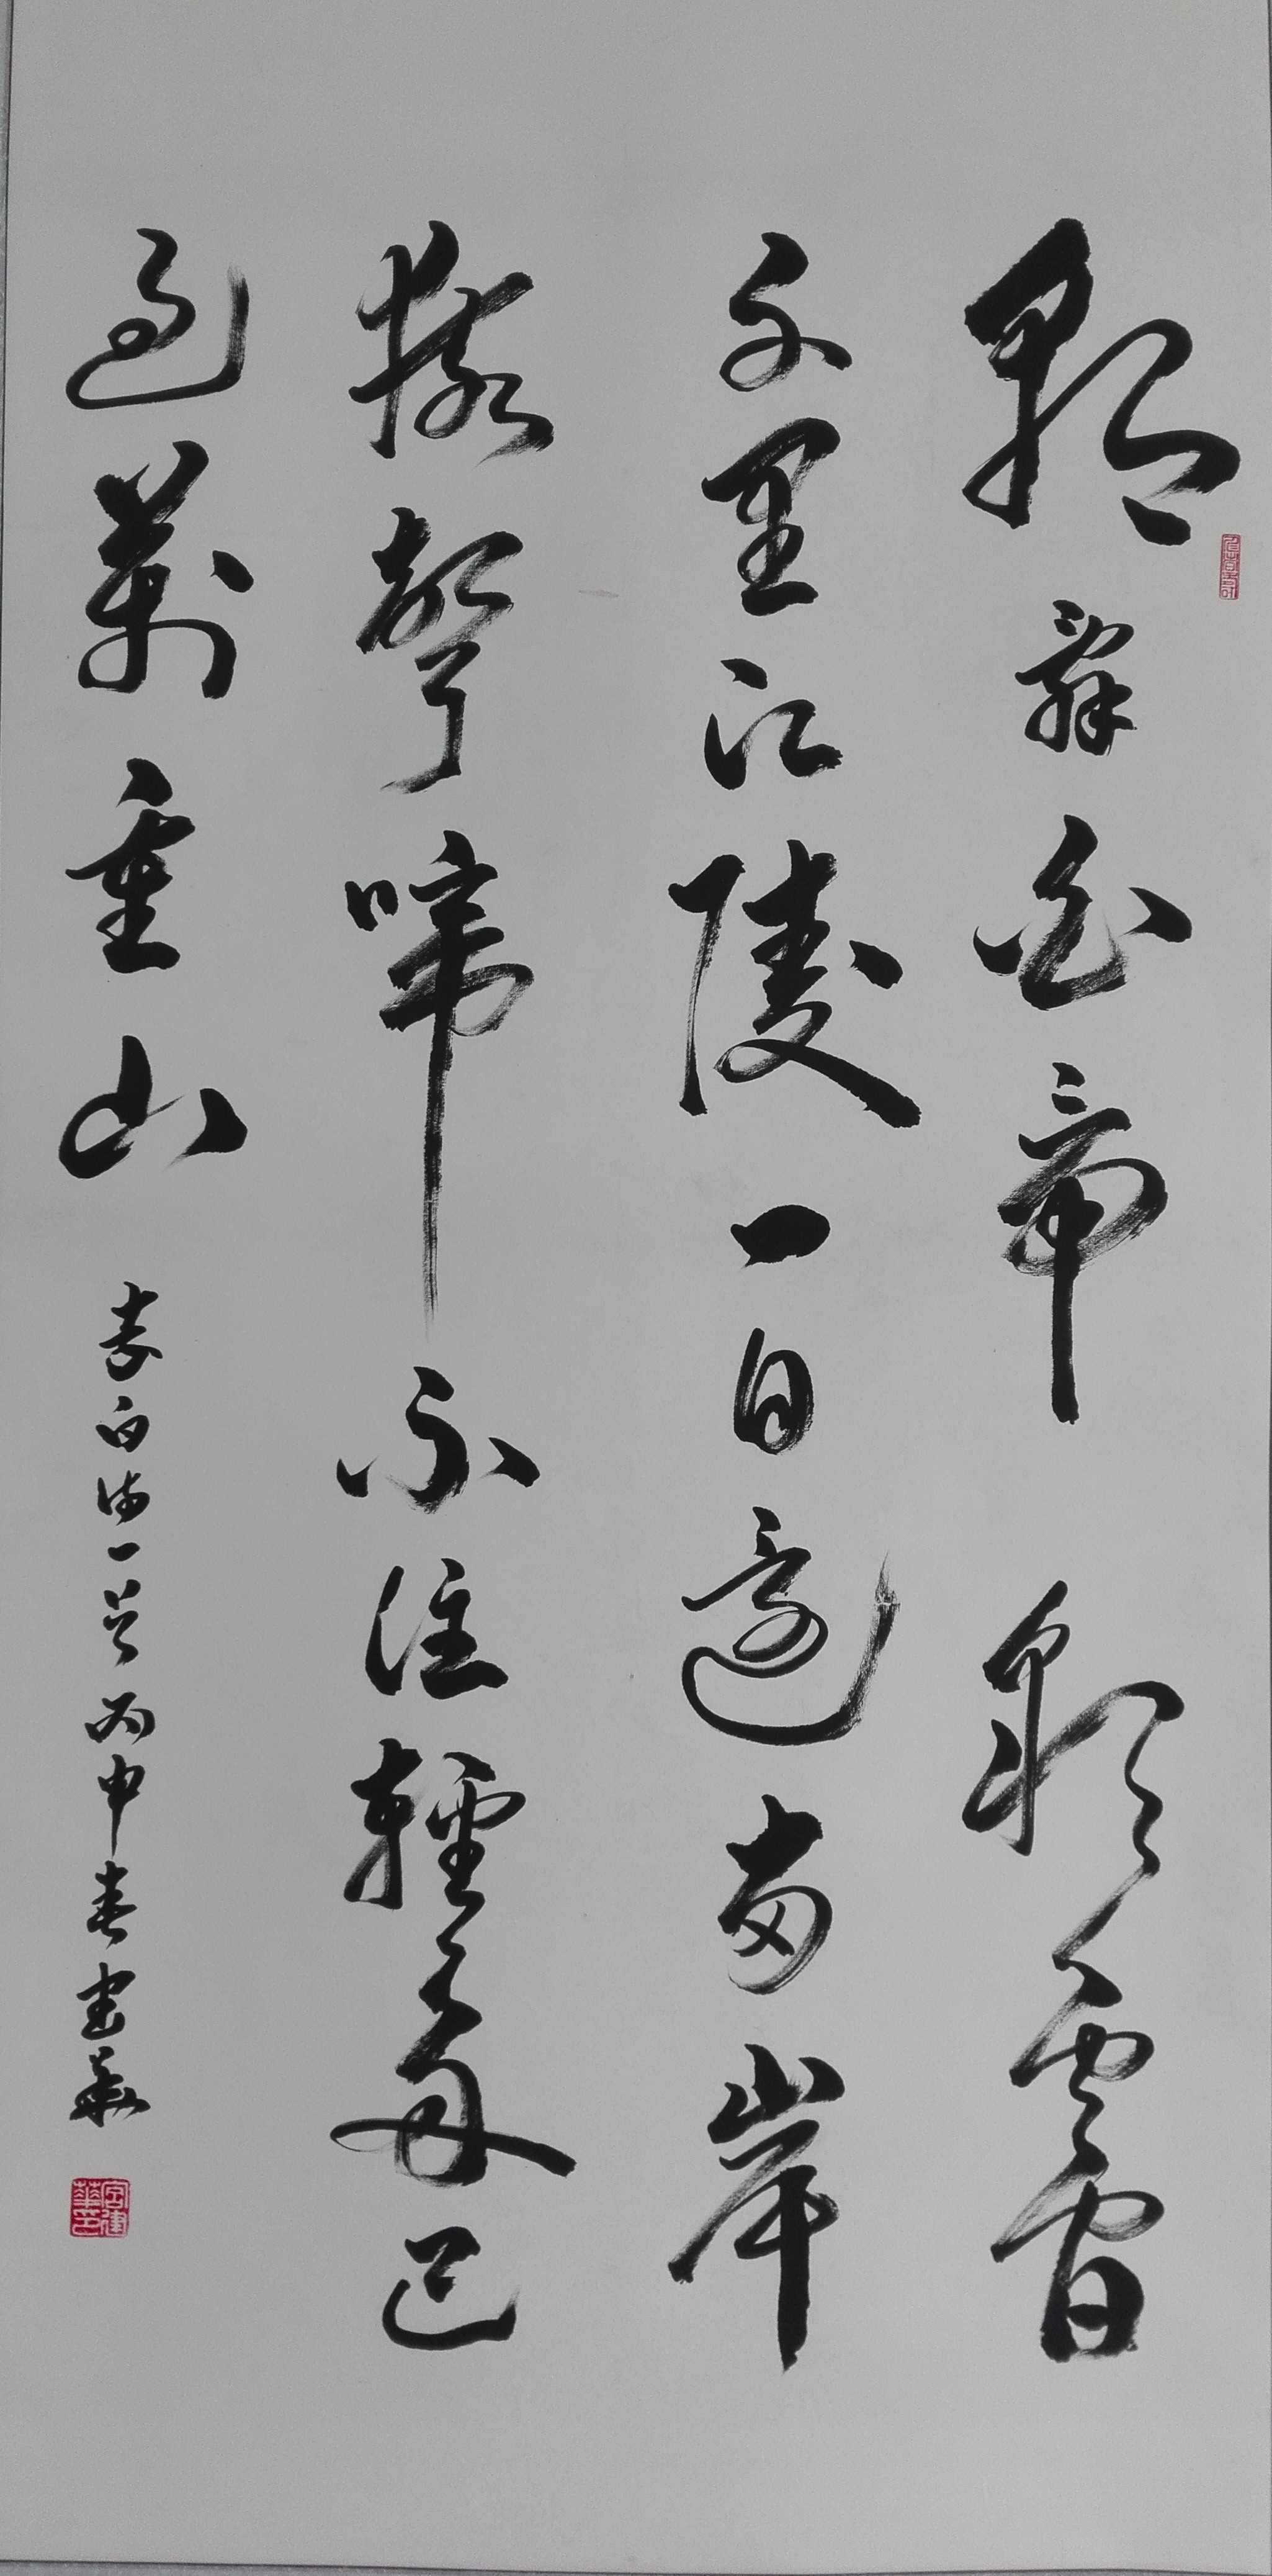 朝辭白帝彩雲間
千里江陵一日還兩岸
猿聲啼不住輕舟已
過萬重山
李白詩一首丙申春建華
宮建華印